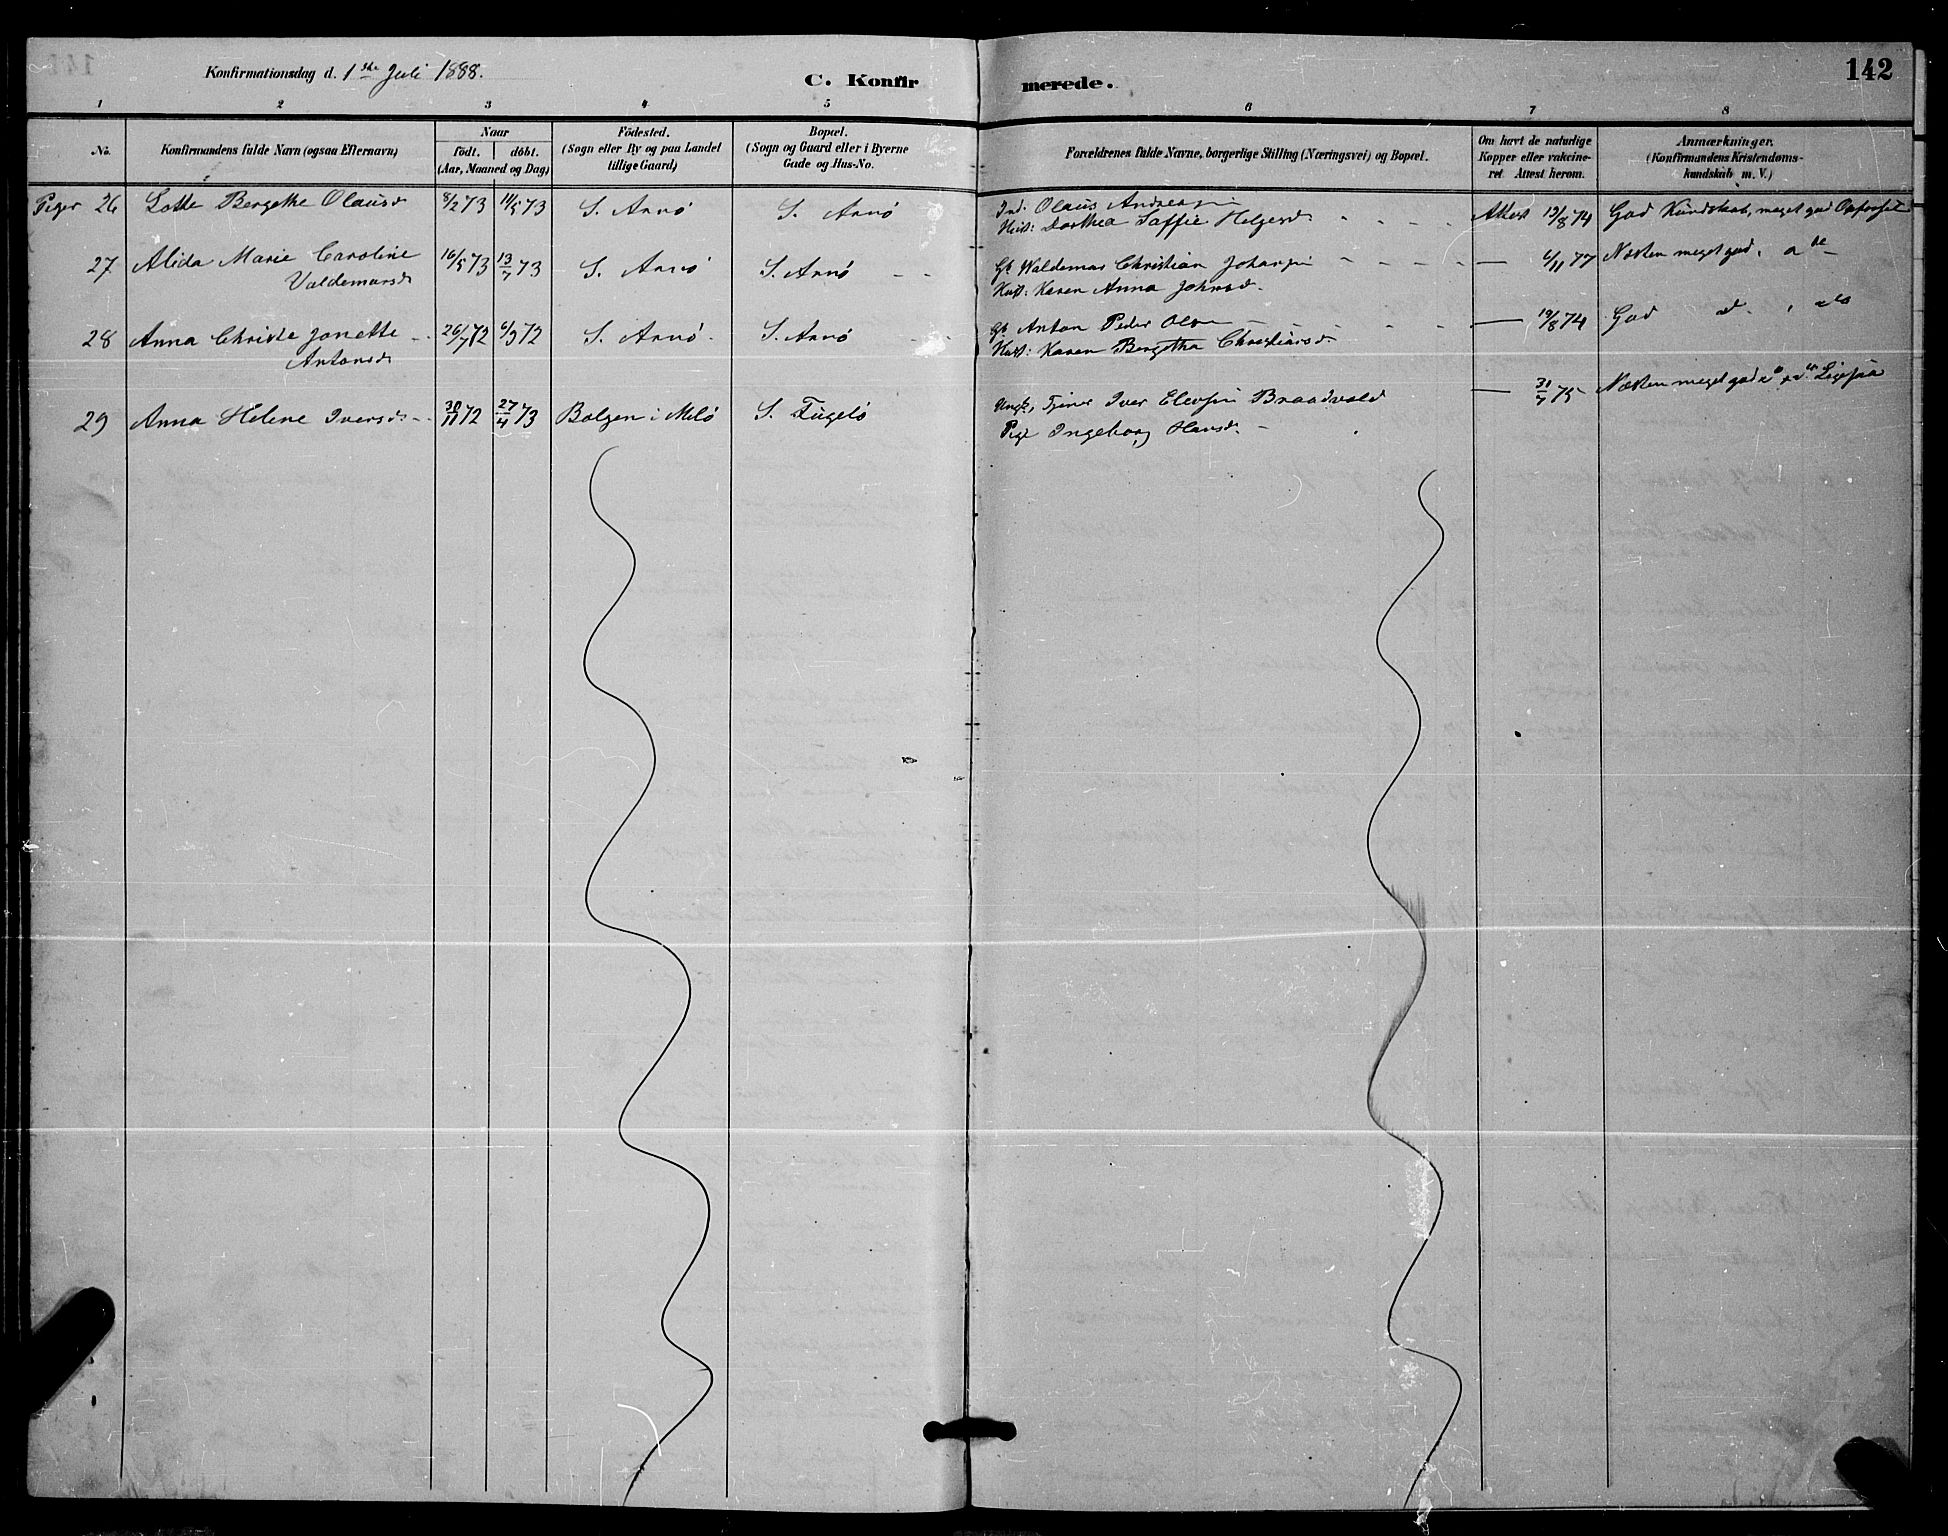 142
Konfirmationsdag d. 1ste Juli 1888.
C. Konfirmerede.
1 2 3 4 5 6 7 8
No.
Konfirmandens fulde Navn (ogsaa Efternavn)
Naar
født. døbt.
(Aar, Maaned og Dag)
Födested.
(Sogn eller By og paa Landet
tillige Gaard)
Bopæl.
(Sogn og Gaard eller i Byerne
Gade og Hus-No.
Forældrenes fulde Navne, borgerlige Stilling (Næringsvei) og Bopæl.
Om havt de naturlige
Kopper eller vakcine-
ret Attest herom.
Anmærkninger.
(Konfirmandens Kristendoms-
kundskab m. V.)
Piger 26 Lotte Bergethe Olausd. 8/2 73 11/5 73 S. Arnö S. Arnö
Ind. Olaus Andreasen
Hust: Dorthea Saffie Helgesd. Attest 19/8 74 God Kundskab, meget god Opførsel
27 Alida Marie Caroline
Valdemarsd. 16/5 73 13/7 73 S. Arnö S. Arnö
Gb. Waldemar Christian Johansen
Hust: Karen Anna Johnsd. — 6/11 77 Næsten meget god.
28 Anna Christe Janette
Antonsd. 26/7 72 6/9 72 S. Arnö S. Arnö
Gb. Anton Peder Olsen
Hust: Karen Bergetha Christiansd. — 19/8 74 God
29 Anna Helene Iversd. 30/11 72 27/4 73 Bolgen i Melö S. Fugelö
Ungk. Tjener Iver Elevsen Braadvold
Pige Ingeborg Hansd. — 31/7 75 Næsten meget god